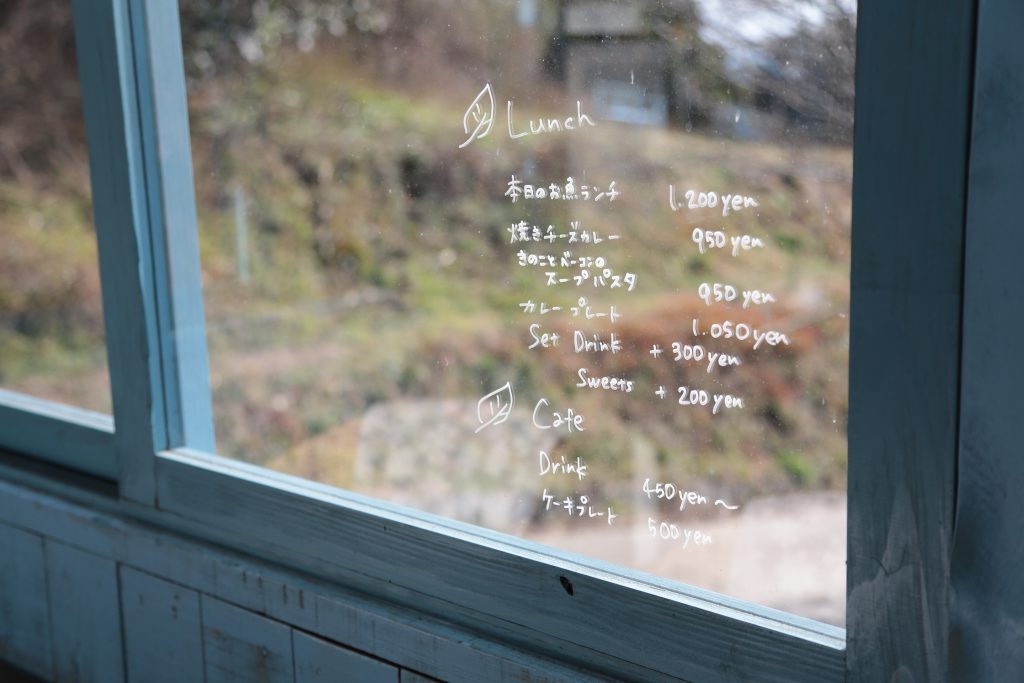 Lunch
本日のお魚ランチ 1.200yen
焼きチーズカレー 950yen
きのことベーコンの
スープパスタ 950yen
カレープレート 1.050yen
Set Drink + 300yen
Sweets + 200yen
Cafe
Drink 450yen～
ケーキプレート 500yen